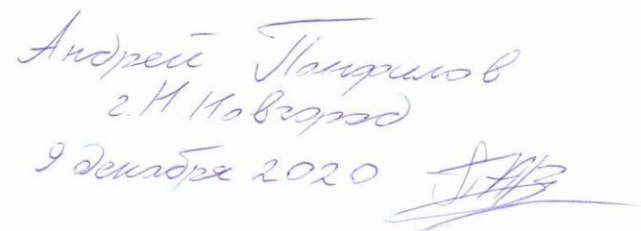 Андрей Панфилов
г. Н Новгород
9 декабря 2020